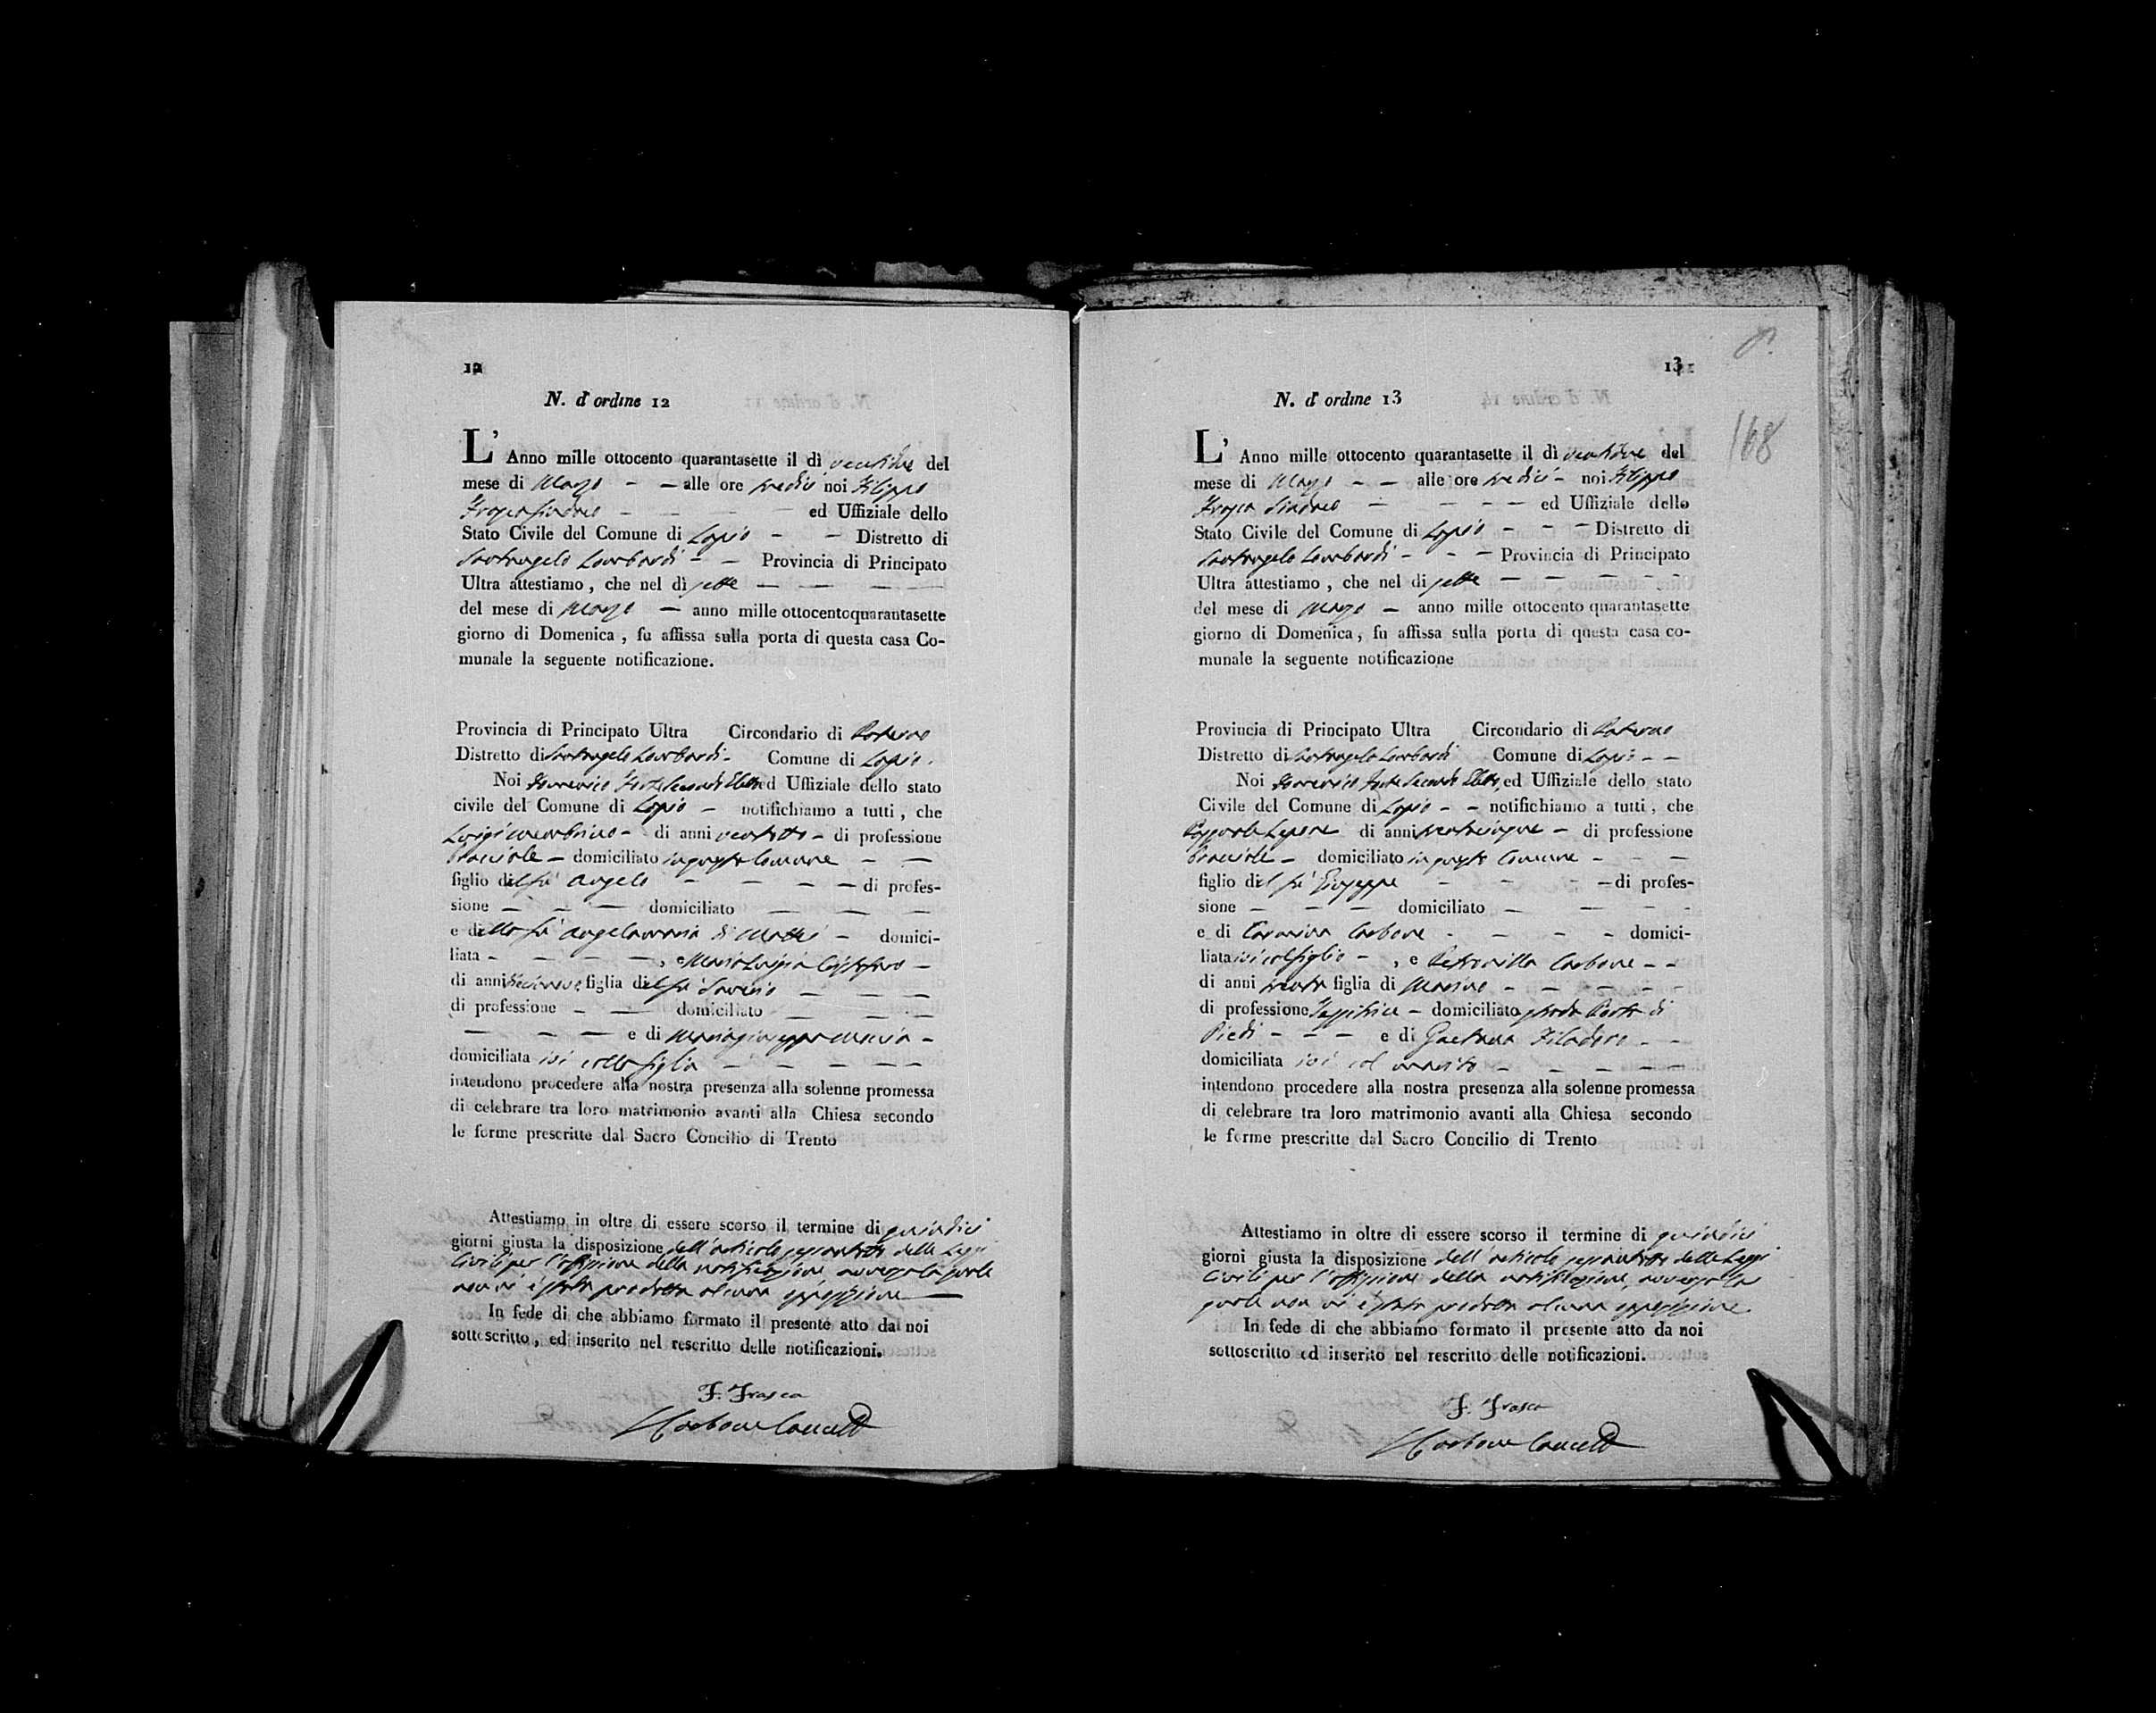 12
N. d'ordine 12
L' Anno mille ottocento quarantasette il dì ventidue del
mese di Marzo - - alle ore tredici noi Filippo
Frasca Sindaco - - - - ed Uffiziale dello
Stato Civile del Comune di Lapio - - Distretto di
Santangelo Lombardi - - Provincia di Principato
Ultra attestiamo , che nel dì sette - - - -
del mese di Marzo - anno mille ottocentoquarantasette
giorno di Domenica , fu affissa sulla porta di questa casa Co-
munale la seguente notificazione.
Provincia di Principato Ultra Circondario di Paterno
Distretto di Santangelo Lombardi - Comune di Lapio .
Noi Domenico Secondo Eletto ed Uffiziale dello stato
civile del Comune di Lapio - notifichiamo a tutti , che
Luigi - di anni ventotto - di professione
bracciale - domiciliato in questo Comune - -
figlio del fu Angelo - - - - di profes-
sione - - - domiciliato - - -
e della fu Angelamaria di - domici-
liata - - - - , e Maria Luigia -
di anni figlia del fu Saverio - - -
di professione - - domiciliato - - -
- - - e di Mariagiuseppa -
domiciliata ivi colla figlia - - - - -
intendono procedere alla nostra presenza alla solenne promessa
di celebrare tra loro matrimonio avanti alla Chiesa secondo
le forme prescritte dal Sacro Concilio di Trento
Attestiamo in oltre di essere scorso il termine di quindici
giorni giusta la disposizione dell'articolo sessantotto delle Leggi
Civili per l'affissione della notificazione avverso la quale
non vi è stata prodotta alcuna opposizione -
In fede di che abbiamo formato il presente atto da noi
sottoscritto , ed inserito nel rescritto delle notificazioni.
F. Frasca
Carbone Cancell
13
168
N. d'ordine 13
L' Anno mille ottocento quarantasette il dì ventidue del
mese di Marzo - - alle ore tredici - noi Filippo
Frasca Sindaco - - - - ed Uffiziale dello
Stato Civile del Comune di Lapio - - - Distretto di
Santangelo Lombardi - - - Provincia di Principato
Ultra attestiamo , che nel di sette - - - - -
del mese di Marzo - anno mille ottocento quarantasette
giorno di Domenica , fu affissa sulla porta di questa casa co-
munale la seguente notificazione
Provincia di Principato Ultra Circondario di Paterno
Distretto di Santangelo Lombardi Comune di Lapio - -
Noi Domenico Secondo Eletto, ed Uffiziale dello stato
Civile del Comune di Lapio - - notifichiamo a tutti , che
Pasquale Lepore di anni trentacinque - di professione
bracciale - domiciliato in questo Comune - - -
figlio del fu Giuseppe - - - - di profes-
sione - - - domiciliato - - - -
e di Carmina Carbone - - - - domici-
liata ivi col figlio - , e Petronilla Carbone - -
di anni trenta figlia di - - - - -
di professione - domiciliato strada Porta di
Piedi - - - e di Gaetana Filadoro - -
domiciliata ivi col marito - - - - -
intendono procedere alla nostra presenza alla solenne promessa
di celebrare tra loro matrimonio avanti alla Chiesa secondo
le forme prescritte dal Sacro Concilio di Trento
Attestiamo in oltre di essere scorso il termine di quindici
giorni giusta la disposizione dell'articolo sessantotto delle Leggi
Civili per l'affissione della notificazione, avverso la
quale non vi è stata prodotta alcuna opposizione.
In fede di che abbiamo formato il presente atto da noi
sottoscritto ed inserito nel rescritto delle notificazioni.
F. Frasca
Carbone Cancell